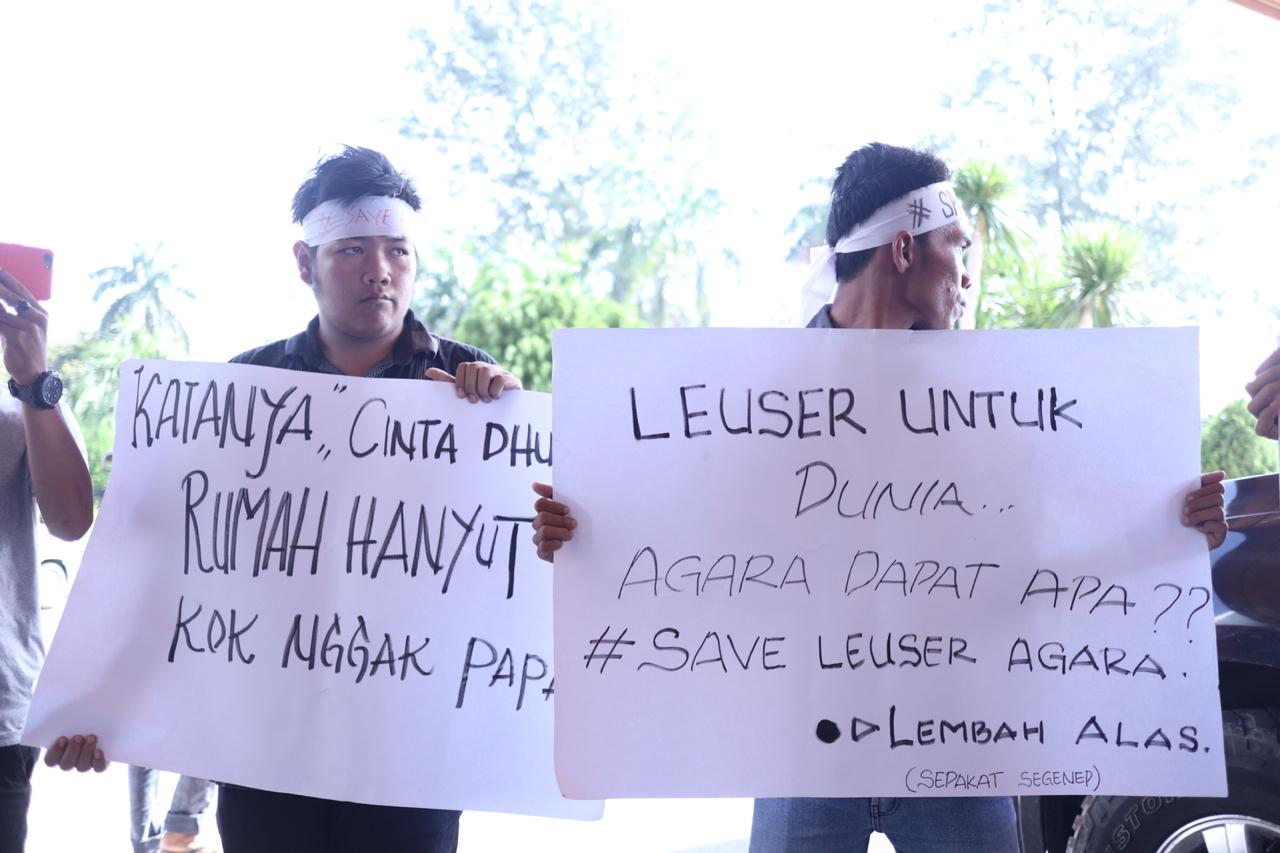 # SAVE
KATANYA,," CINTA DHU
RUMAH HANYUT
KOK NGGAK PAPA
# SA
LEUSER UNTUK
DUNIA...
AGARA DAPAT APA??
# SAVE LEUSER AGARA.
LEMBAH ALAS.
(SEPAKAT SEGENEP)